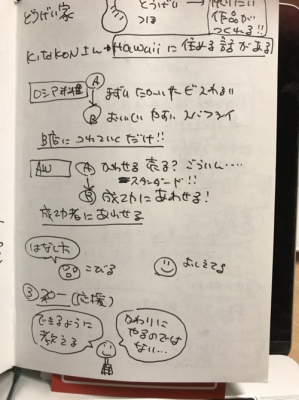 とうげい家
とうげい
つぼ
作りたい
作品が
つくれる!!
KITAKONさん→Hawaiiに住める話がある
ロシア料理
A
まずい たかい サービスわるい
B
おいしい やすい
B店につれていくだけ!!
AW
A
かわせる 売る? ごういん....
=スタンダード!!
B
成功にあわせる!
成功者にあわせる
はなし方
こびる
おしえてる
③ (応援)
できるように
教える
かわりに
やるのでは
ない...